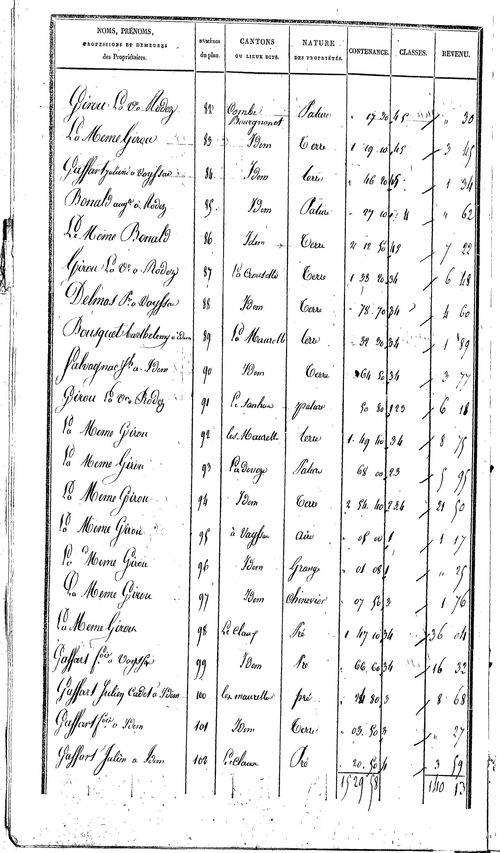 NOMS, PRÉNOMS, PROFESSIONS ET DEMEURES des Propriétaires. NUMÉROS du plan. CANTONS OU LIEUX DITS. NATURE DES PROPRIÉTÉS. CONTENANCE. CLASSES. REVENU.
Girou La Ve Rodez 82 Combe Bourgnonet Pature " 17 20 45 " 30
La Meme Girou 83 Idem Terre 1 19 10 45 3 45
Gaffart Julien a Vayssac 84 Idem terre " 46 20 45 1 34
Bonald aug. à Rodez 85 Idem Pature " 27 10 4 " 62
Le Meme Bonald 86 Idem Terre 2 12 50 7 22
Girou La Ve a Rodez 87 Terre 1 38 20 34 6 48
Delmas 88 Idem Terre 78 70 34 4 60
Bousquet Barthelemy a Idem 89 La Maurelle terre 32 20 34 1 89
Salvagnac a Idem 90 Idem Terre 64 50 34 3 77
Girou La Ve Rodez 91 pature 50 80 123 6 18
La Meme Girou 92 les Maurelle terre 1 49 40 34 8 75
La Meme Girou 93 Pature 68 00 23 5 95
La Meme Girou 94 Idem Terre 2 54 40 234 21 50
La Meme Girou 95 à Vayssac aire " 05 00 1 1 17
La Meme Girou 96 Idem Grange " 01 08 1 " 25
La Meme Girou 97 Idem Chenevier " 07 50 3 1 76
La Meme Girou 98 Le Claux Pré 1 47 10 34 36 04
Gaffart a Vayssac 99 Idem Pre 66 60 34 16 32
Gaffart Julien Cadet à Idem 100 les maurelle pré " 24 80 3 8 68
Gaffart à Idem 101 Idem Terre " 03 50 3 " 27
Gaffart Julien a Idem 102 Le Claux Pré " 20 50 4 3 59
15 29 58 140 13